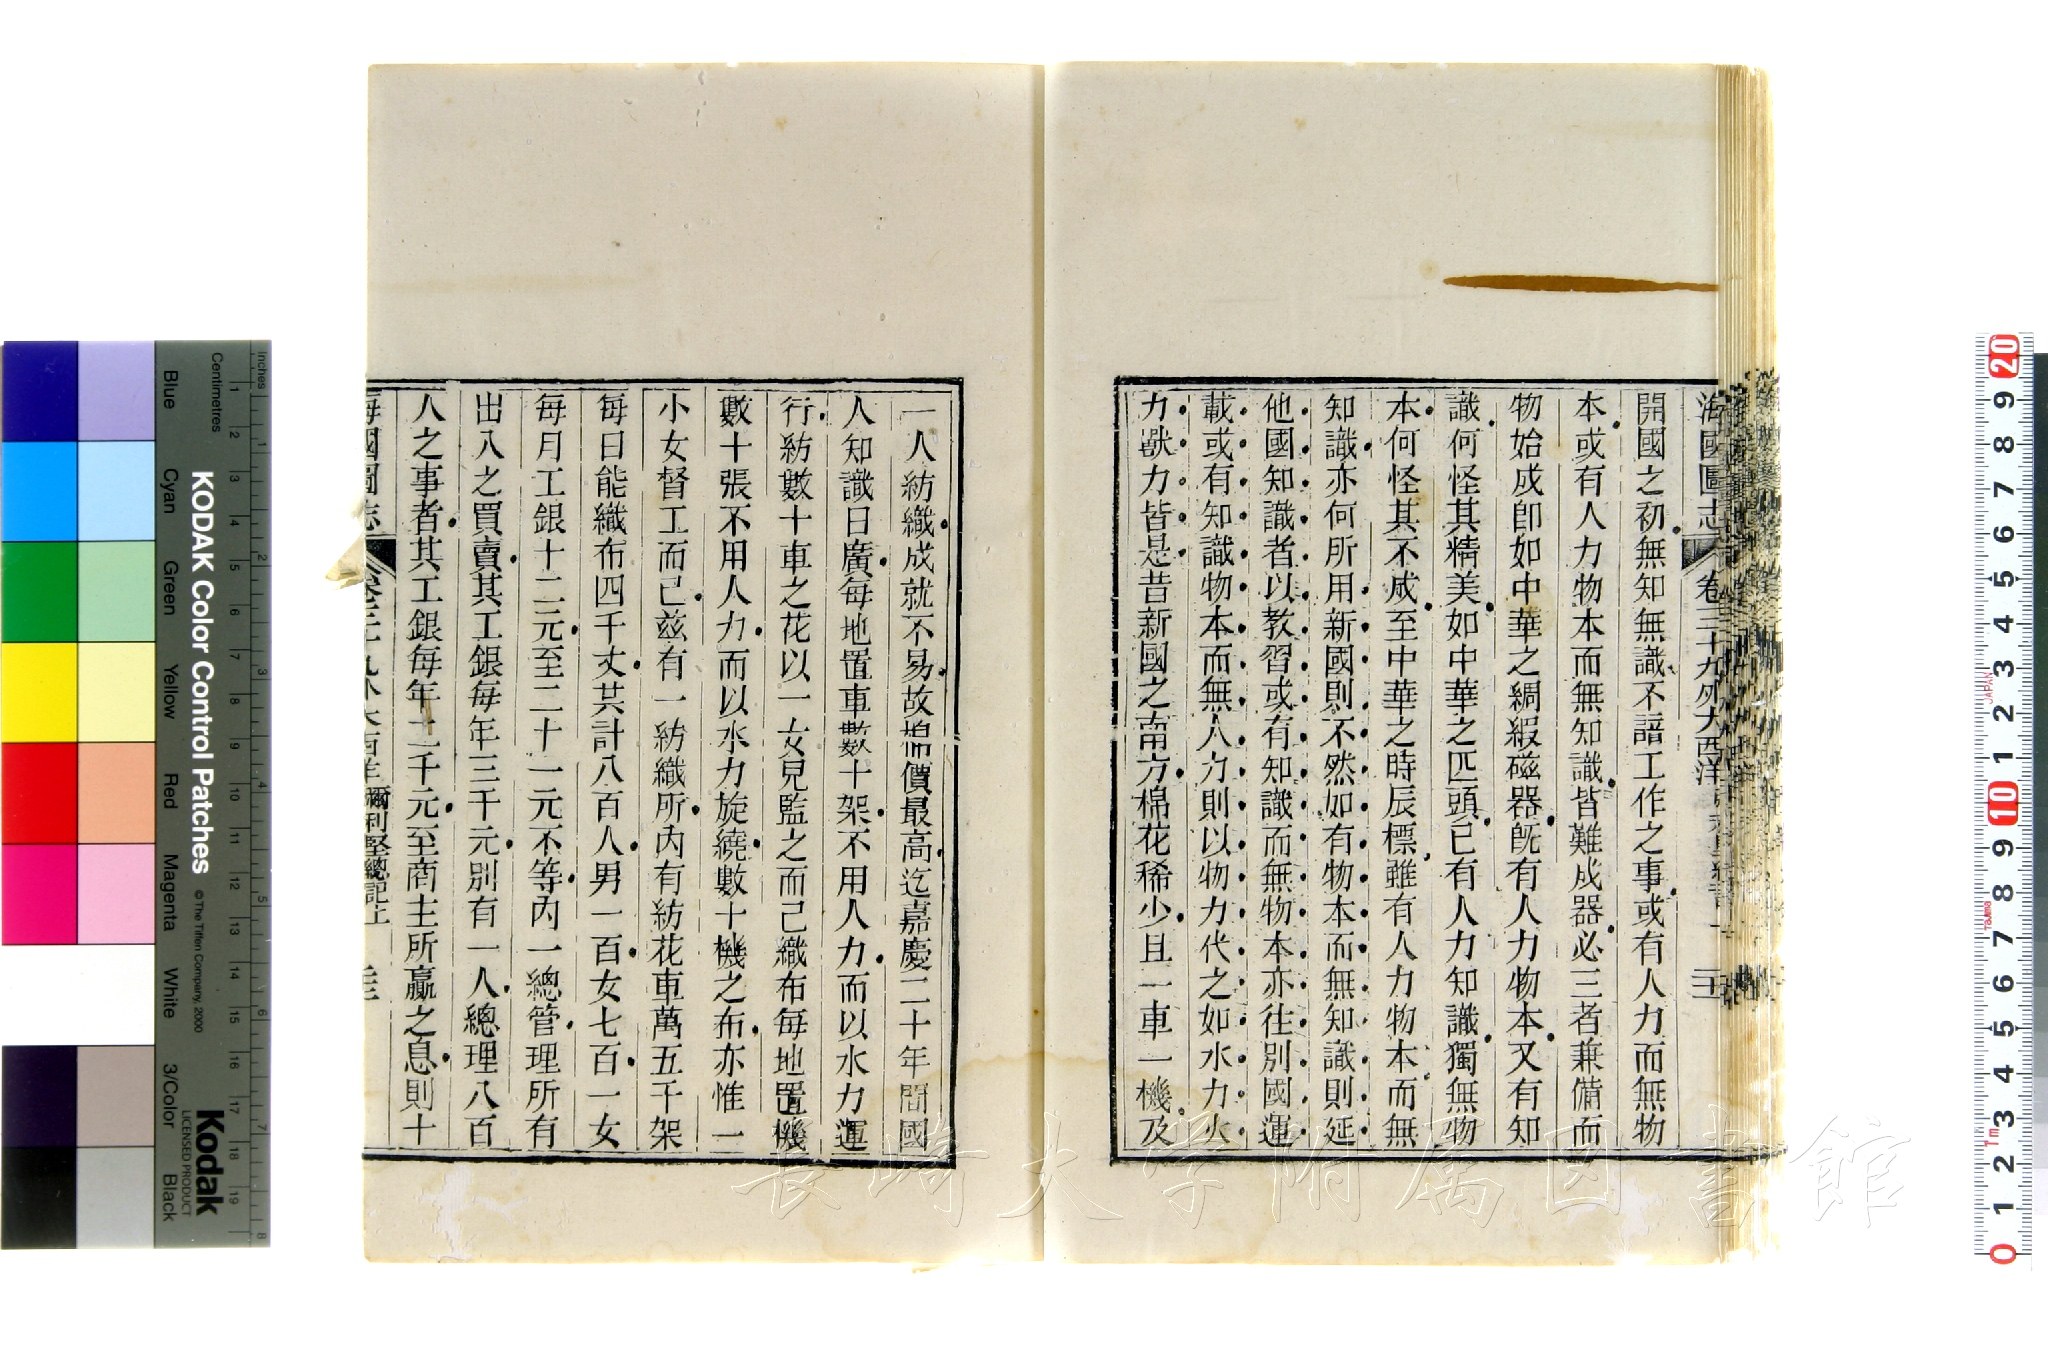 海國圖志 卷三十九 外大西洋
開國之初無知無識不諳工作之事或有人力而無物
本或有人力物本而無知識皆難成器必三者兼備而
物始成卽如中華之綢緞磁器旣有人力物本又有知
識何怪其精美如中華之匹頭已有人力知識獨無物
本何怪其不成至中華之時辰標雖有人力物本而無
知識亦何所用新國則不然如有物本而無知識則延
他國知識者以教習或有知識而無物本亦往別國運
載或有知識物本而無人力則以物力代之如水力火
力獸力皆是昔新國之南方棉花稀少且一車一機及
一人紡織成就不易故棉價最高迄嘉慶二十年間國
人知識日廣每地置車數十架不用人力而以水力運
行紡數十車之花以一女兒監之而已織布每地置機
數十張不用人力而以水力旋繞數十機之布亦惟一
小女督工而已茲有一紡織所內有紡花車萬五千架
每日能織布四千丈共計八百人男一百女七百一女
每月工銀十二元至二十一元不等內一總管理所有
出入之買賣其工銀每年三千元別有一人總理八百
人之事者其工銀每年二千元至商主所贏之息則十
海國圖志 卷三十九 外大西洋 彌利堅總記上 三
長崎大学附属図書館
KODAK Color Control Patches © The Tiffen Company, 2000
Kodak
LICENSED PRODUCT
Inches 1 2 3 4 5 6 7 8
Centimetres 1 2 3 4 5 6 7 8 9 10 11 12 13 14 15 16 17 18 19
Blue Cyan Green Yellow Red Magenta White 3/Color Black
20 9 8 7 6 5 4 3 2 1 10 9 8 7 6 5 4 3 2 1 0
JAPAN